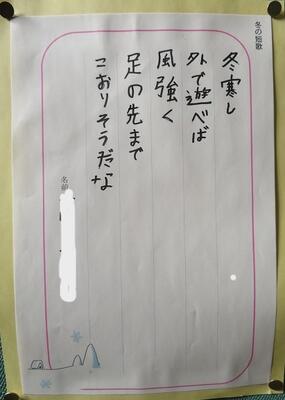 冬の短歌
冬寒し
外で遊べば
風強く
足の先まで
こおりそうだな
名前